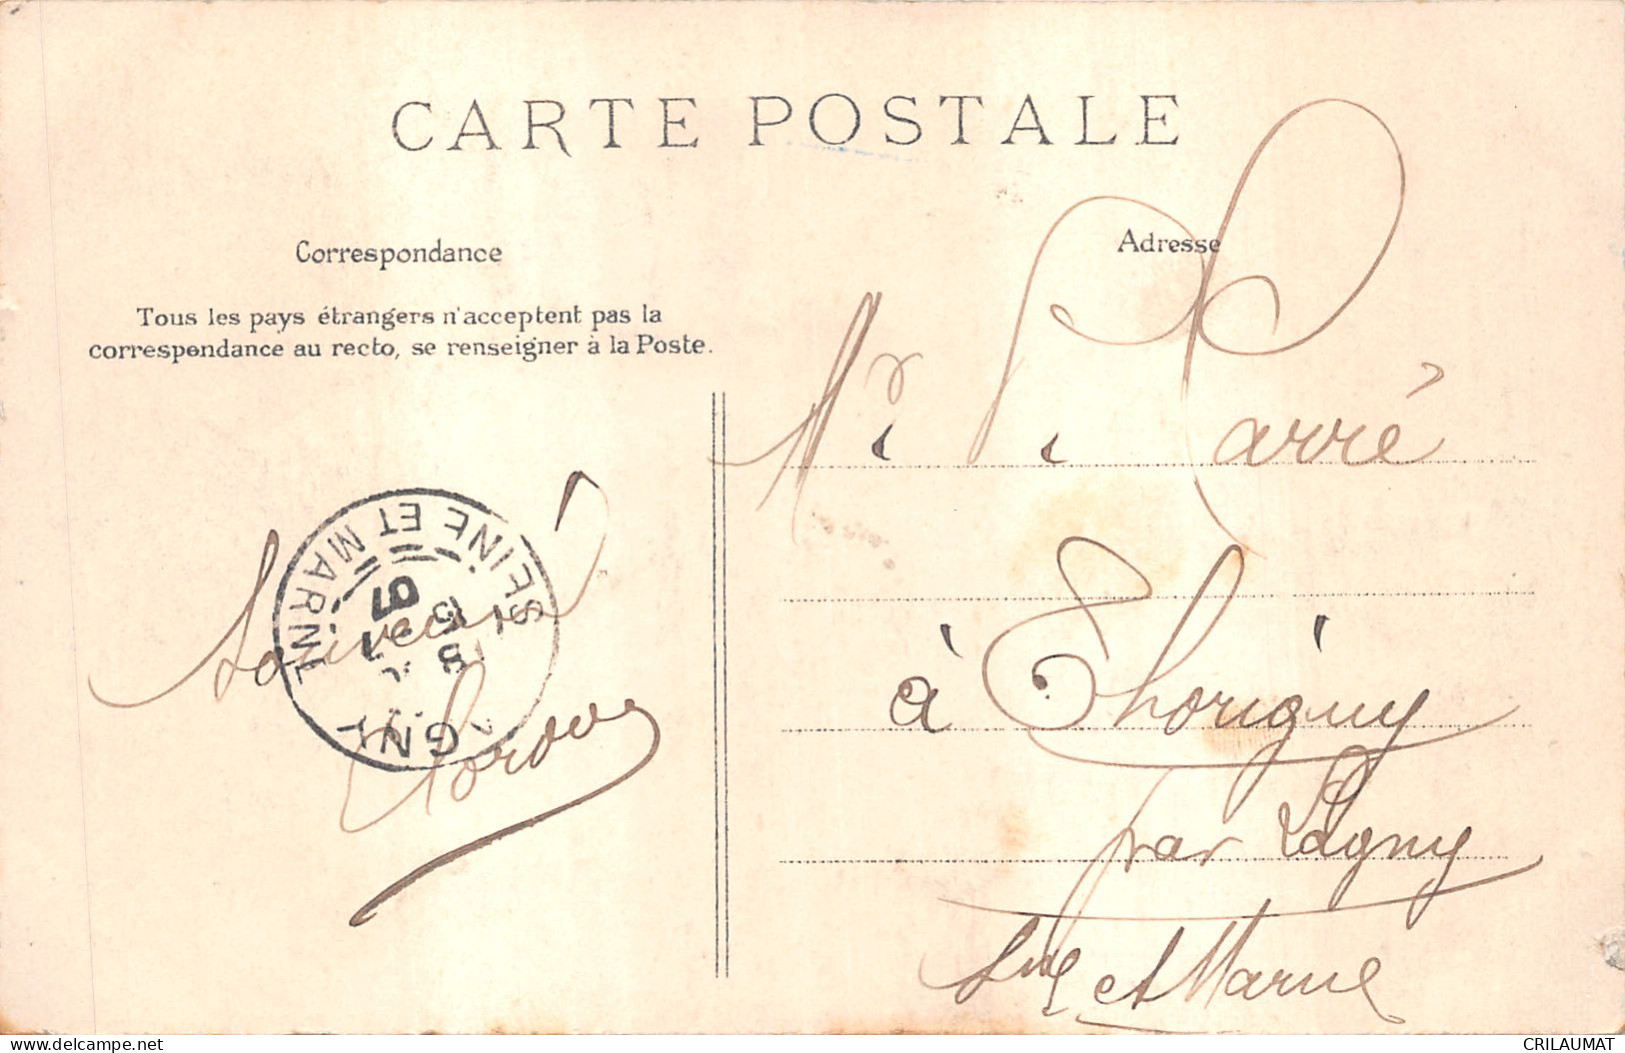 CARTE POSTALE
Correspondance
Adresse
Tous les pays étrangers n'acceptent pas la
correspondance au recto, se renseigner à la Poste.
Mr P. Carré
à Thorigny
par Lagny
Sne et Marne
Souvenir
SEINE ET MARNE
delcampe.net
CRILAUMAT